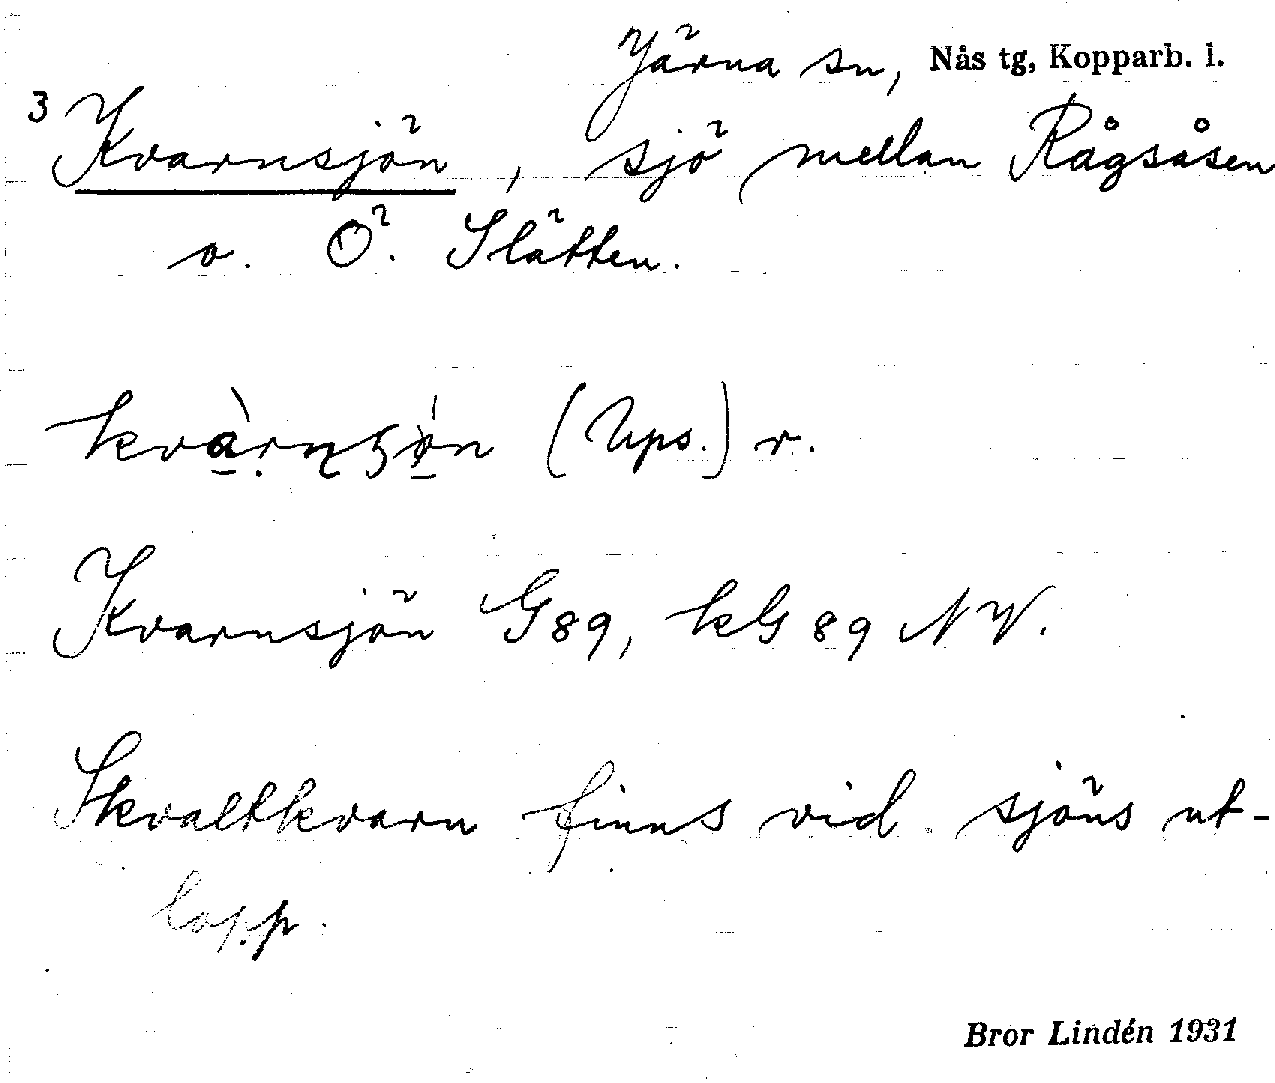 Järna sn, Nås tg, Kopparb. l.
3 Kvarnsjön, sjö mellan Rågsåsen
o. Ö. Slätten.
(Ups.) r.
Kvarnsjön G 89, kG 89 NV.
Skvaltkvarn finns vid sjöns ut-
lopp.
Bror Lindén 1931